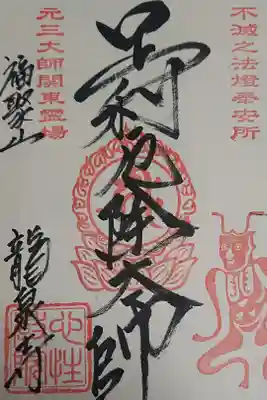 不滅之法燈奉安所
足利厄除大師
元三大師関東霊場
福聚山
龍泉寺